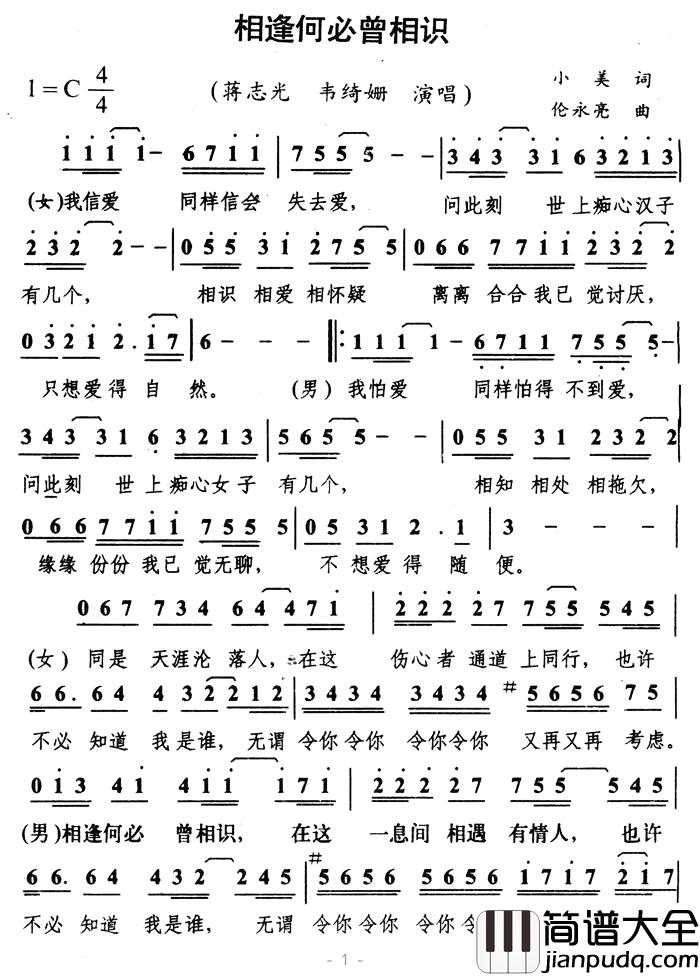 相逢何必曾相识
1=C 4/4 (蒋志光 韦绮姗 演唱) 小美 词
伦永亮 曲
1 1 1 1 - 6 7 1 1 | 7 5 5 5 - - | 3 4 3 3 1 6 3 2 1 3 |
(女)我信爱 同样信会 失去爱, 问此刻 世上痴心汉子
2 3 2 2 - - | 0 5 5 3 1 2 7 5 5 | 0 6 6 7 7 1 1 2 7 2 2 |
有几个, 相识 相爱 相怀疑 离离 合合我已 觉讨厌,
0 3 2 1 2 . 1 7 | 6 - - - |: 1 1 1 1 - 6 7 1 1 | 7 5 5 5 - |
只想爱得 自 然。 (男)我怕爱 同样怕得 不到爱,
3 4 3 3 1 6 3 2 1 3 | 5 6 5 5 - - | 0 5 5 3 1 2 3 2 2 |
问此刻 世上痴心女子 有几个, 相知 相处 相拖欠,
0 6 6 7 7 1 1 7 5 5 5 | 0 5 3 1 2 . 1 | 3 - - -
缘缘 份份 我已 觉无聊, 不想爱得 随 便。
0 6 7 7 3 4 6 4 4 4 7 1 | 2 2 2 2 7 7 5 5 5 4 5
(女) 同是 天涯沦 落人, 在这 伤心者 通道 上同行, 也许
6 6 . 6 4 4 3 2 2 2 1 2 | 3 4 3 4 3 4 3 4 #5 6 5 6 7 5 |
不必 知道 我是谁, 无谓 令你令你 令你令你 又再又再 考虑。
0 1 3 4 1 4 1 1 1 7 1 | 2 2 2 2 7 7 5 5 5 5 4 5 |
(男)相逢何必 曾相识, 在这 一息间 相遇 有情人, 也许
6 6 . 6 4 4 3 2 2 2 4 5 | #5 6 5 6 5 6 5 6 1 7 1 7 2 1 7 |
不必 知道 我是谁, 无谓 令你令你 令你令
简谱大全
jianpudq.com
- 1 -